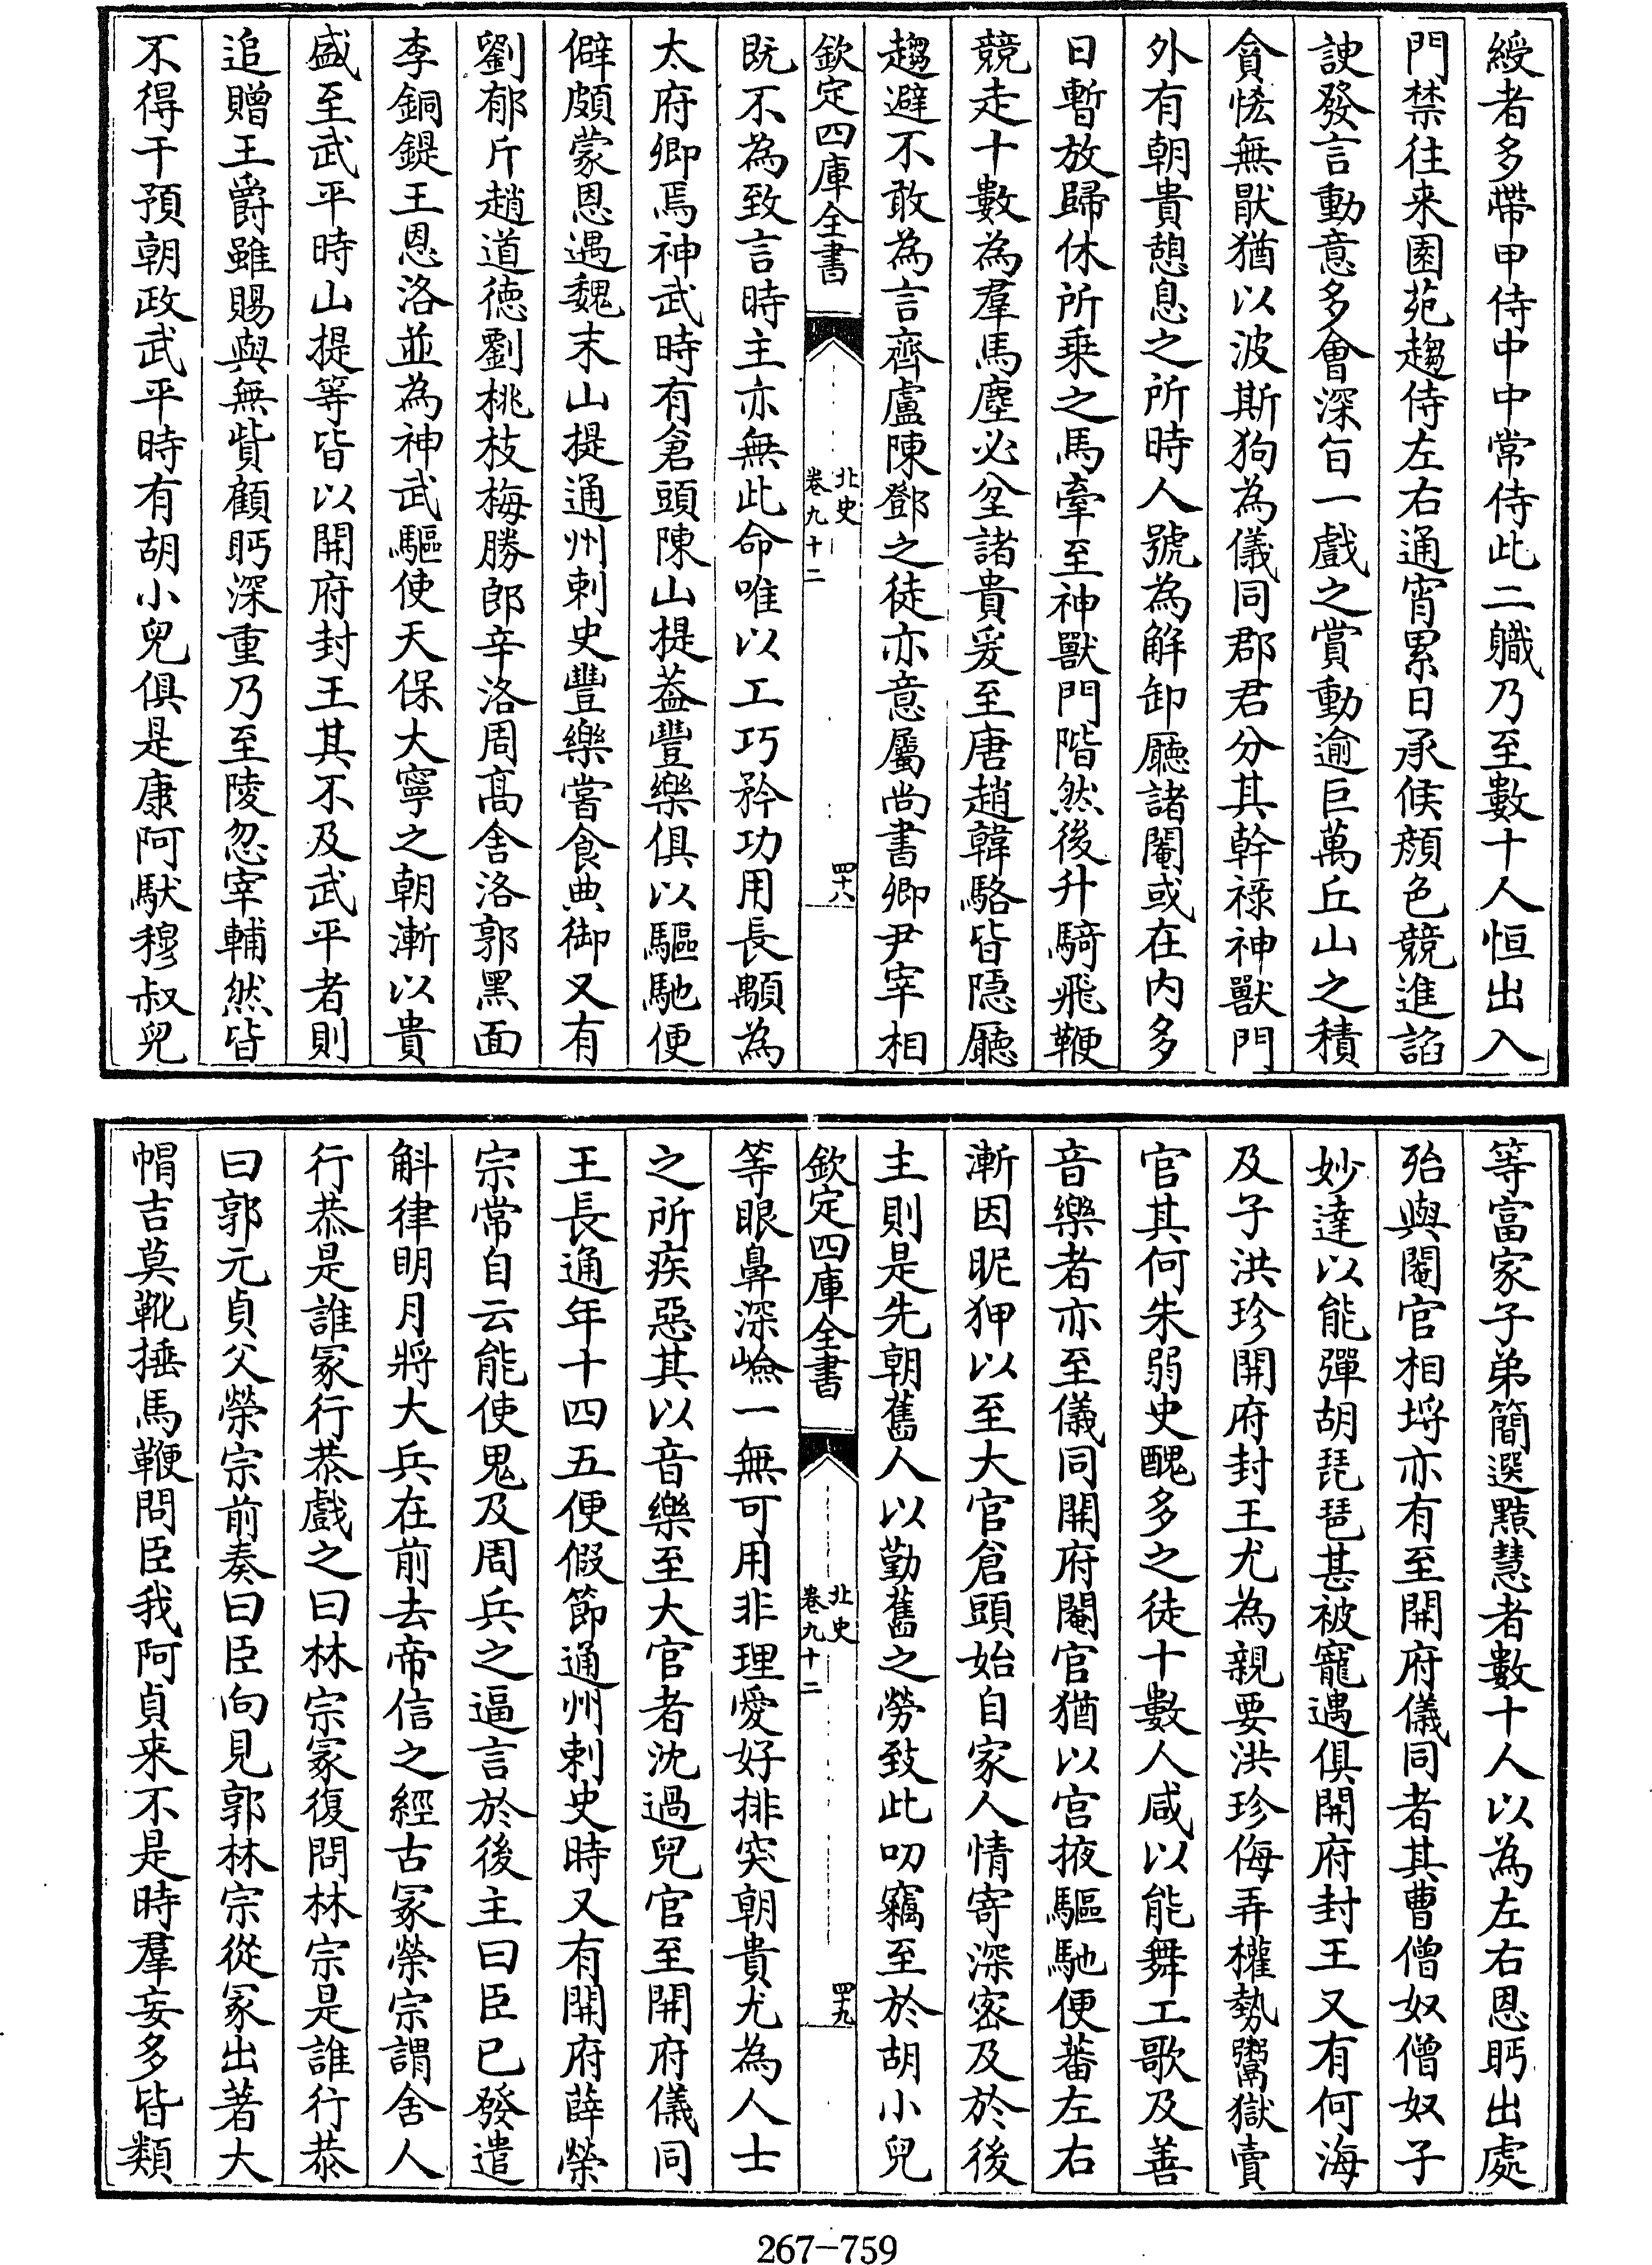 綬者多帶甲侍中中常侍此二職乃至數十人恒出入
門禁往来園苑趨侍左右通宵累日承候顔色競進諂
諛發言動意多會深旨一戲之賞動逾巨萬丘山之積
貪恡無厭猶以波斯狗為儀同郡君分其幹禄神獸門
外有朝貴憩息之所時人號為解卸廳諸閹或在内多
日暫放歸休所乗之馬牽至神獸門階然後升騎飛鞭
競走十數為羣馬塵必坌諸貴爰至唐趙韓駱皆隠廳
趨避不敢為言齊盧陳鄧之徒亦意屬尚書卿尹宰相
欽定四庫全書
北史
卷九十二
四十八
既不為致言時主亦無此命唯以工巧矜功用長顒為
太府卿焉神武時有倉頭陳山提葢豐樂俱以驅馳便
僻頗蒙恩遇魏末山提通州刺史豐樂嘗食典御又有
劉郁斤趙道徳劉桃枝梅勝郎辛洛周髙舍洛郭黑面
李銅鍉王恩洛並為神武驅使天保大寧之朝漸以貴
盛至武平時山提等皆以開府封王其不及武平者則
追贈王爵雖賜與無貲顧眄深重乃至陵忽宰輔然皆
不得干預朝政武平時有胡小兒俱是康阿馱穆叔兒
等富家子弟簡選黠慧者數十人以為左右恩眄出處
殆與閹官相埒亦有至開府儀同者其曹僧奴僧奴子
妙達以能彈胡琵琶甚被寵遇俱開府封王又有何海
及子洪珍開府封王尤為親要洪珍侮弄權勢鬻獄賣
官其何朱弱史醜多之徒十數人咸以能舞工歌及善
音樂者亦至儀同開府閹官猶以宫掖驅馳便蕃左右
漸因昵狎以至大官倉頭始自家人情寄深密及於後
主則是先朝舊人以勤舊之勞致此叨竊至於胡小兒
欽定四庫全書
北史
卷九十二
四十九
等眼鼻深嶮一無可用非理愛好排突朝貴尤為人士
之所疾惡其以音樂至大官者沈過兒官至開府儀同
王長通年十四五便假節通州刺史時又有開府薛榮
宗常自云能使鬼及周兵之逼言於後主曰臣已發遣
斛律明月將大兵在前去帝信之經古冢榮宗謂舍人
行恭是誰冢行恭戲之曰林宗冢復問林宗是誰行恭
曰郭元貞父榮宗前奏曰臣向見郭林宗從冢出著大
帽吉莫靴捶馬鞭問臣我阿貞来不是時羣妄多皆類
267-759